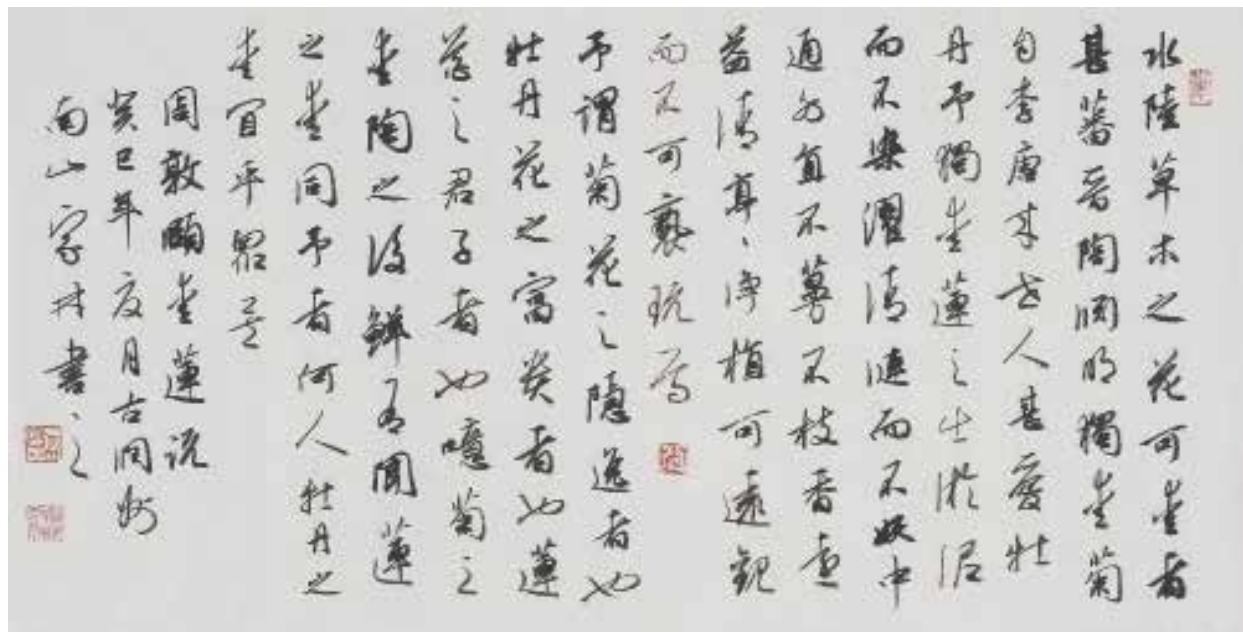 水陸草木之花可愛者
甚蕃晉陶淵明獨愛菊
自李唐来世人甚愛牡
丹予獨愛蓮之出淤泥
而不染濯清漣而不妖中
通外直不蔓不枝香遠
益清亭々淨植可遠觀
而不可褻玩焉
予謂菊花之隱逸者也
牡丹花之富贵者也蓮
花之君子者也噫菊之
愛陶之後鮮有聞蓮
之愛同予者何人牡丹之
愛宜乎眾矣
周敦頤愛蓮説
癸巳年夏月古润州
南山家林書之